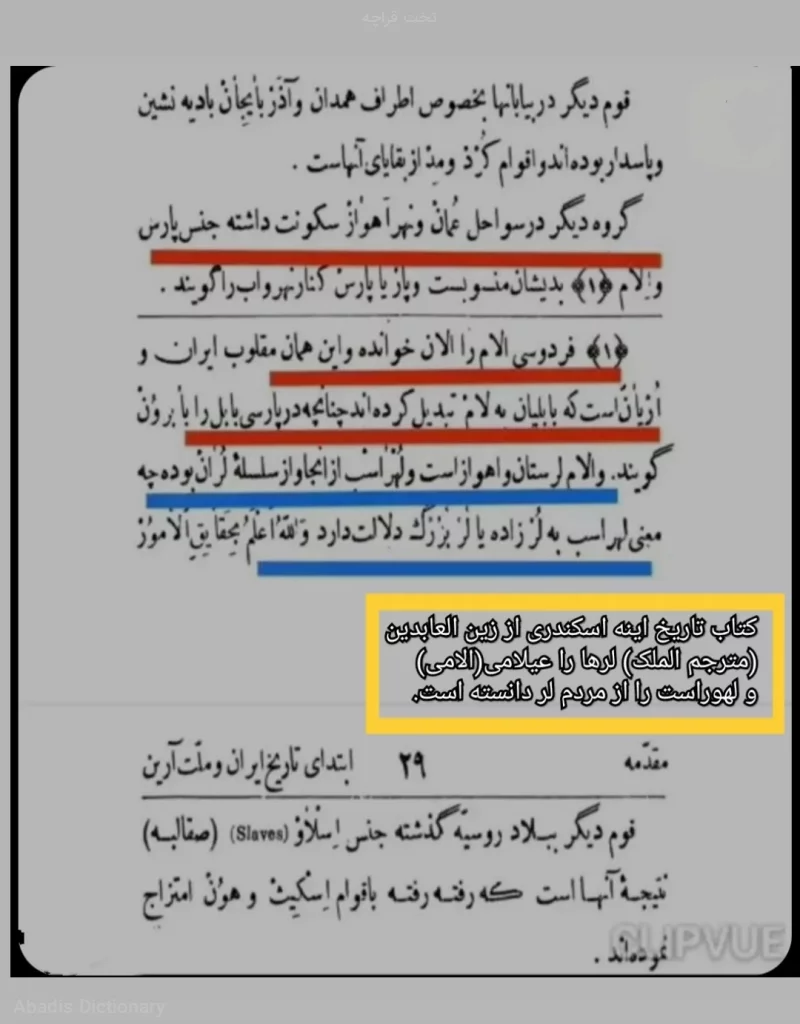 تخت قراچه
قوم دیگر در بیابانها بخصوص اطراف همدان وآذَرْبأیجانْ بادیه نشین
وپاسدار بوده‌اند واقوام کُرْدْ ومِدْ از بقایای آنهاست .
گروه دیگر در سواحل عُمانْ ونهر اَهوازْ سکونت داشته جنس پارس
واِلام ﴿۱﴾ بدیشان منسوبست وپارْ یا پارسْ کنار نهر واب را گویند .
﴿۱﴾ فردوسی الام را الان خوانده واین همان مقلوب ایران و
اَرْیأنْ است که بابلیان به لام تبدیل کرده‌اند چنانچه در پارسی بابل را بأبروُنْ
گویند. والام لرستان واهواز است ولُهْراسْب از انجا واز سلسلهٔ لُرانْ بوده چه
معنی لهراسب به لُرْ زاده یا لُرْ بُزْرَكْ دلالت دارد وَاللهُ اَعْلَمُ بِحَقایِقِ الْاُموُرْ
کتاب تاریخ اینه اسکندری از زین العابدین
(مترجم الملک) لرها را عیلامی(الامی)
و لهوراست را از مردم لر دانسته است.
مقدّمه ۲۹ ابتدای تاریخ ایران وملّت آرین
قوم دیگر ببلاد روسیّه گذشته جنس اِسْلاوْ (Slaves) (صقالبه)
نتیجهٔ آنها است که رفته رفته باقوام اِسْکیثْ و هوُنْ امتزاج
نموده‌اند .
CLIPVUE
Abadis Dictionary